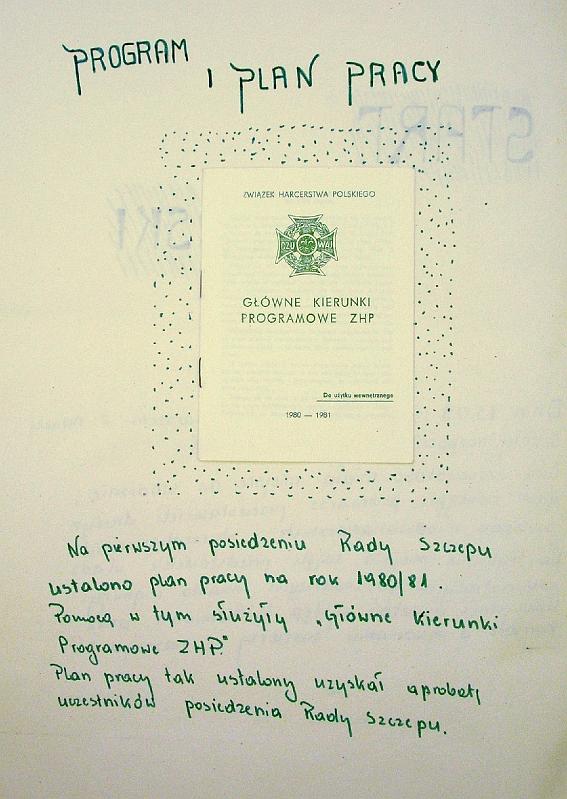 PROGRAM
I PLAN PRACY
ZWIĄZEK HARCERSTWA POLSKIEGO
CZUWAJ
GŁÓWNE KIERUNKI
PROGRAMOWE ZHP
Do użytku wewnętrznego
1980 — 1981
Na pierwszym posiedzeniu Rady Szczepu
ustalono plan pracy na rok 1980/81.
Pomocą w tym służyły „Główne Kierunki
Programowe ZHP."
Plan pracy tak ustalony uzyskał aprobatę
uczestników posiedzenia Rady Szczepu.